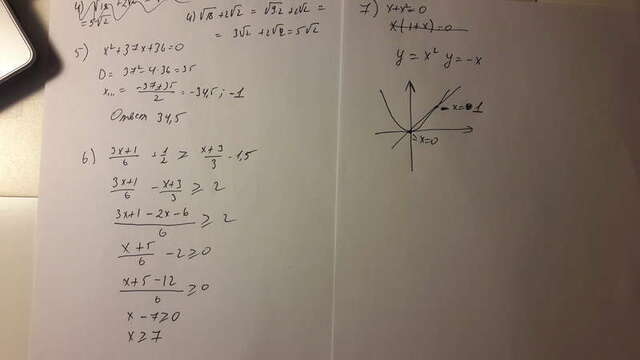 4) √18 + 2√2 = √9·2 + 2√2 =
= 5√2
= 3√2 + 2√2 = 5√2
5) x² + 37x + 36 = 0
D = 37² - 4·36 = 35
= -37±35/2 = -34,5; -1
Ответ 34,5
6) 3x+1/6 + 1/2 ≥ x+3/3 - 1,5
3x+1/6 - x+3/3 ≥ 2
3x+1-2x-6/6 ≥ 2
x+5/6 - 2 ≥ 0
x+5-12/6 ≥ 0
x - 7 ≥ 0
x ≥ 7
7) x + x² = 0
x(1+x) = 0
y = x² y = -x
x = 1
x = 0